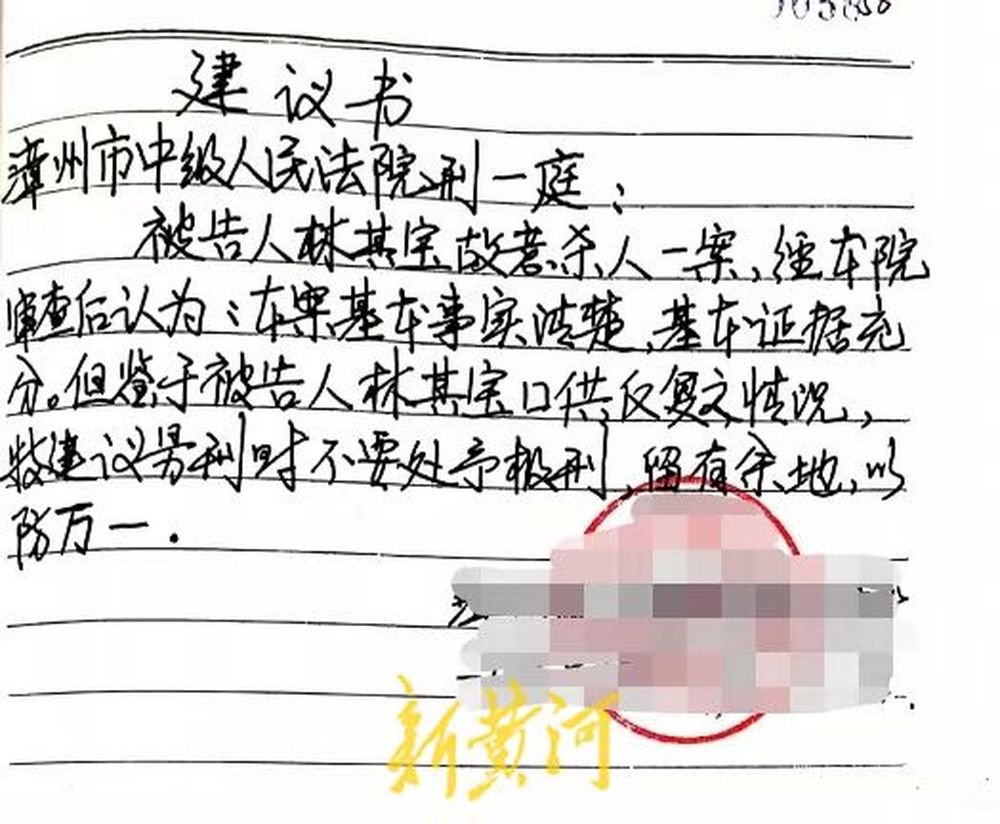 建议书
漳州市中级人民法院刑一庭：
被告人林其宝故意杀人一案,经本院
审查后认为：本案基本事实清楚,基本证据充
分。但鉴于被告人林其宝口供反复之情况,
特建议量刑时不要处予极刑,留有余地,以
防万一.
新黄河